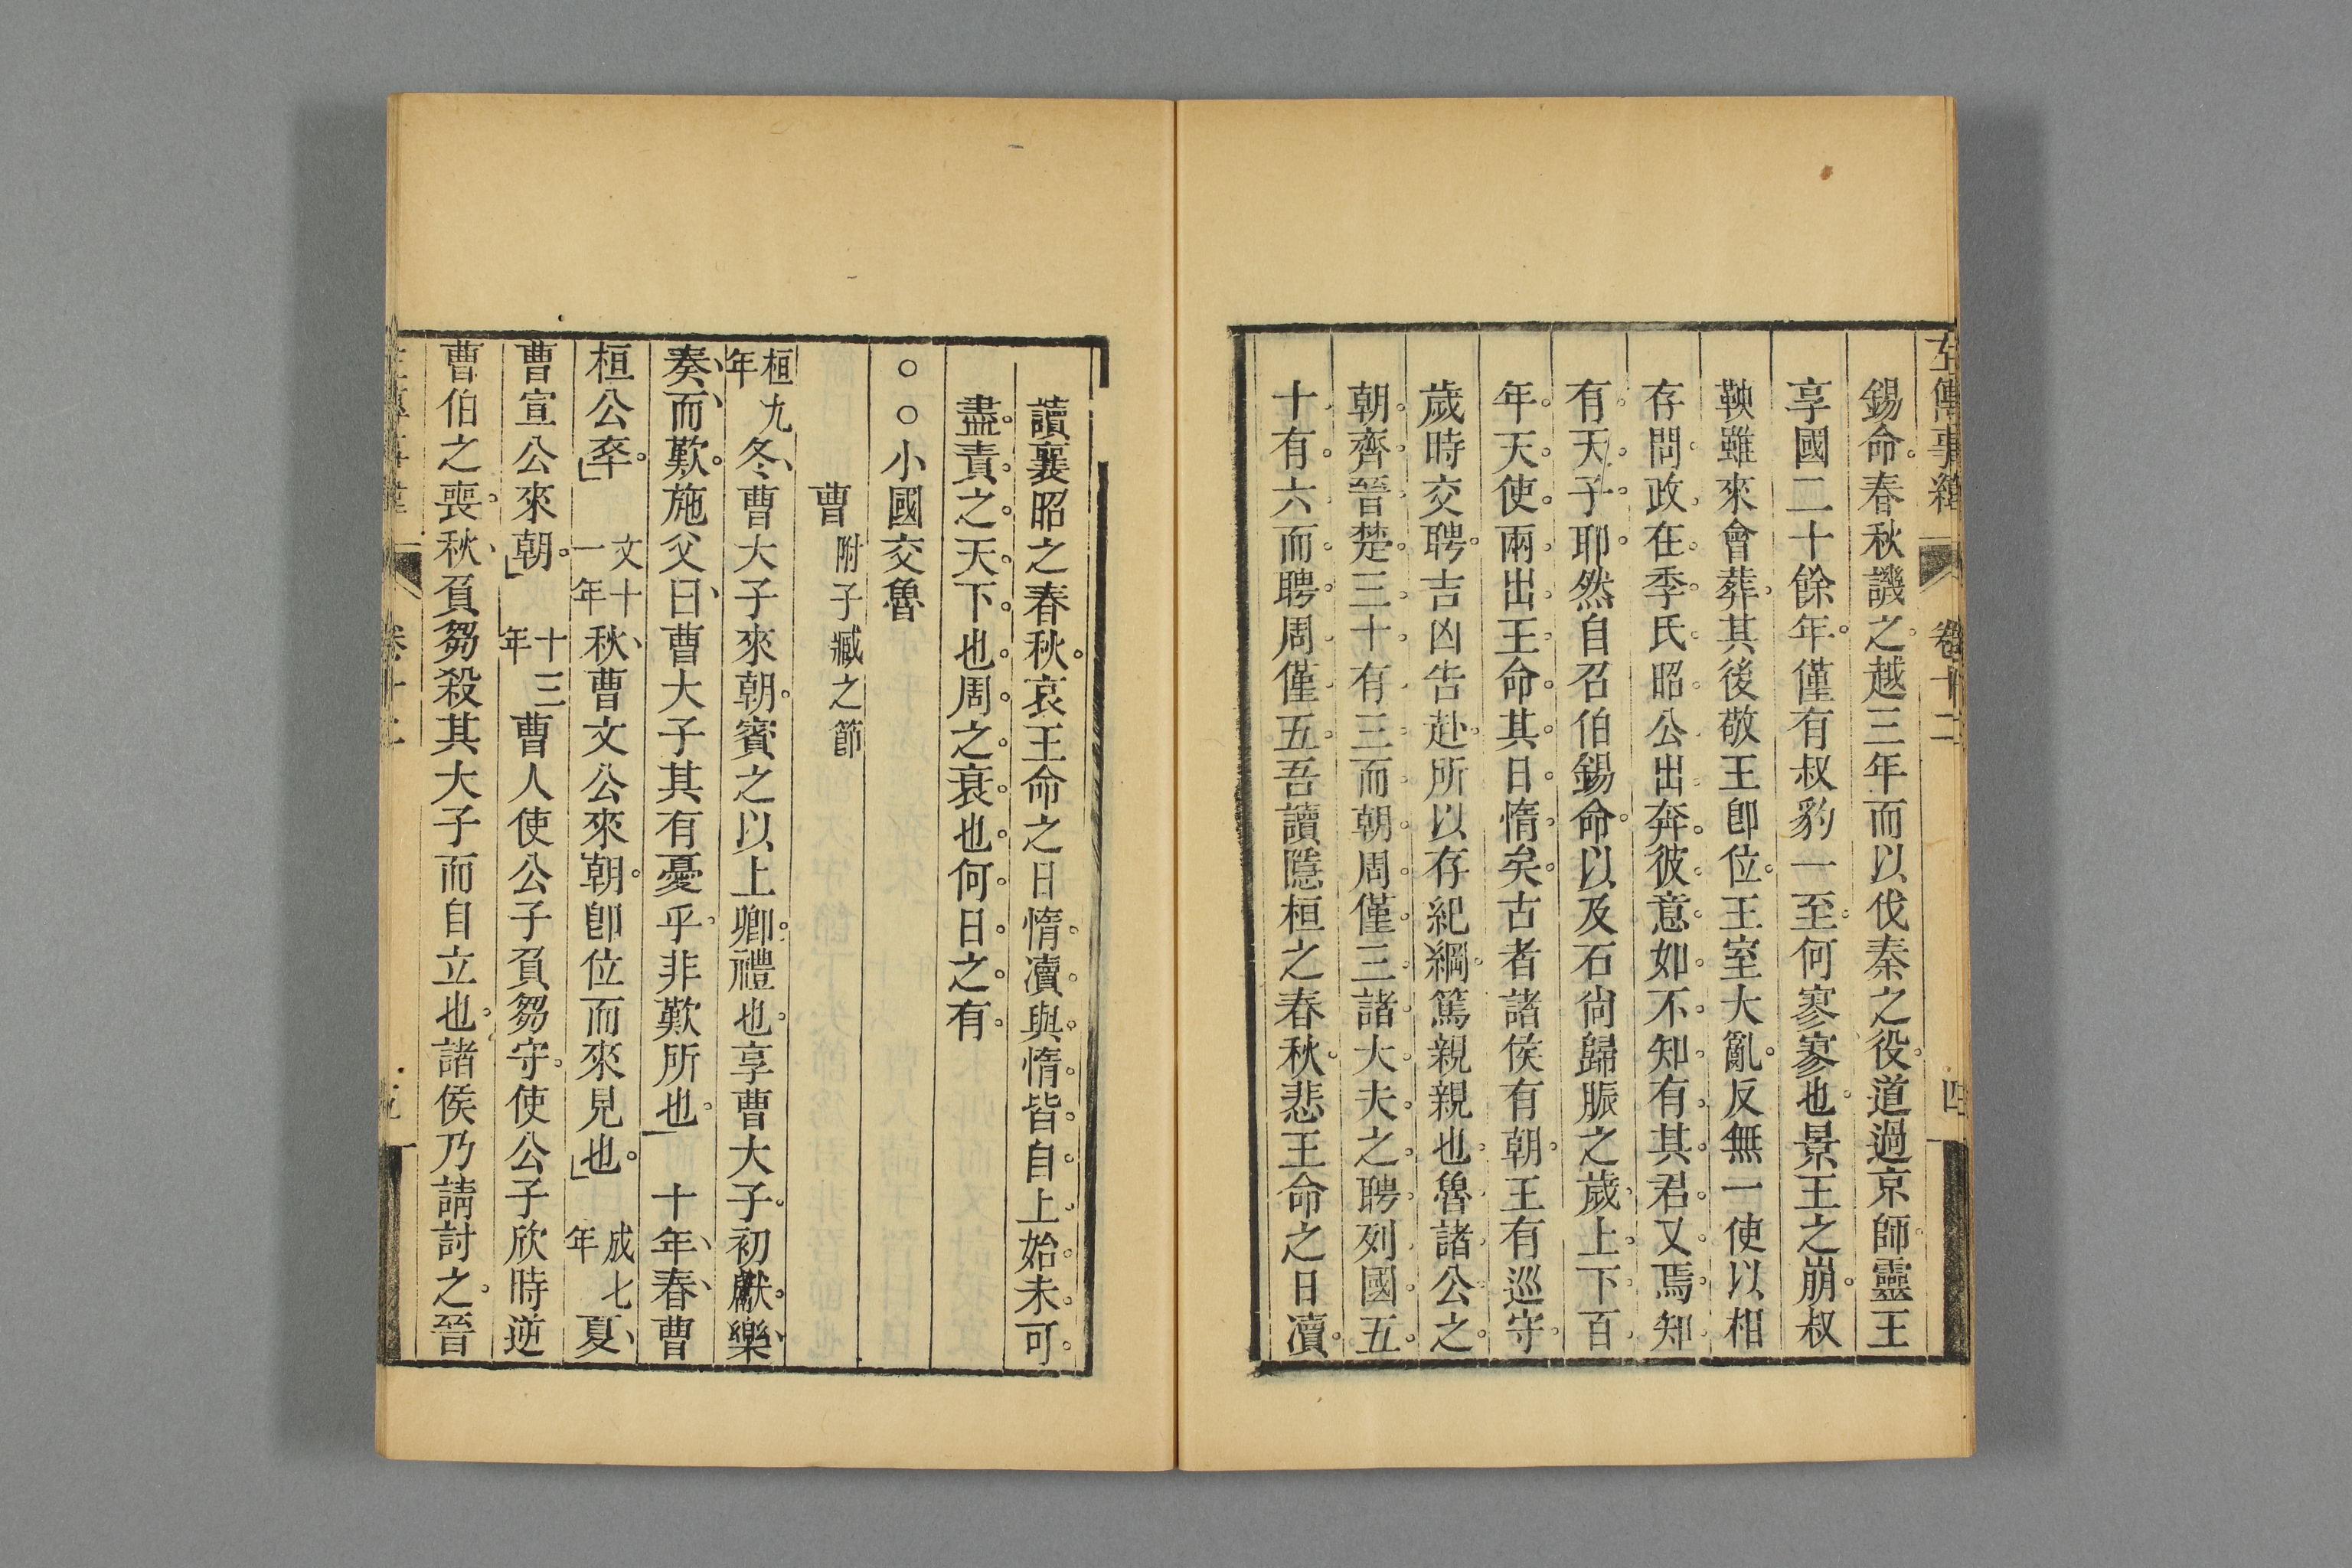 左傳事緯 卷十二 四
錫命。春秋譏之。越三年而以伐秦之役。道過京師。靈王
享國二十餘年。僅有叔豹一至。何寥寥也。景王之崩。叔
鞅雖來會葬。其後敬王卽位。王室大亂。反無一使以相
存問。政。在。季。氏。昭。公。出。奔。彼。意。如。不。知。有。其。君。又。焉。知。
有。天。子。耶。然自召伯錫命。以及石尙歸脤之歲。上。下。百。
年。天。使。兩。出。王。命。其。日。惰。矣。古者諸侯有朝。王有巡守。
歲時交聘。吉凶告赴。所以存紀綱。篤親親也。魯。諸。公。之。
朝。齊。晉。楚。三。十。有。三。而。朝。周。僅。三。諸。大。夫。之。聘。列。國。五。
十。有。六。而。聘。周。僅。五。吾讀隱桓之春秋。悲王命之日瀆。
讀襄昭之春秋。哀王命之日惰。瀆。與。惰。皆。自。上。始。未。可。
盡。責。之。天。下。也。周。之。衰。也。何。日。之。有。
○○小國交魯
曹 附子臧之節
桓九年 冬、曹大子來朝。賓之以上卿。禮也。享曹大子。初獻。樂、
奏、而、歎。施父曰、曹大子其有憂乎。非歎所也。」 十年、春、曹
桓公卒。」 文十一年 秋、曹文公來朝。卽位而來見也。」 成七年 夏、
曹宣公來朝。」 十三年 曹人使公子負芻守。使公子欣時逆
曹伯之喪。秋、負芻殺其大子而自立也。諸侯乃請討之。晉